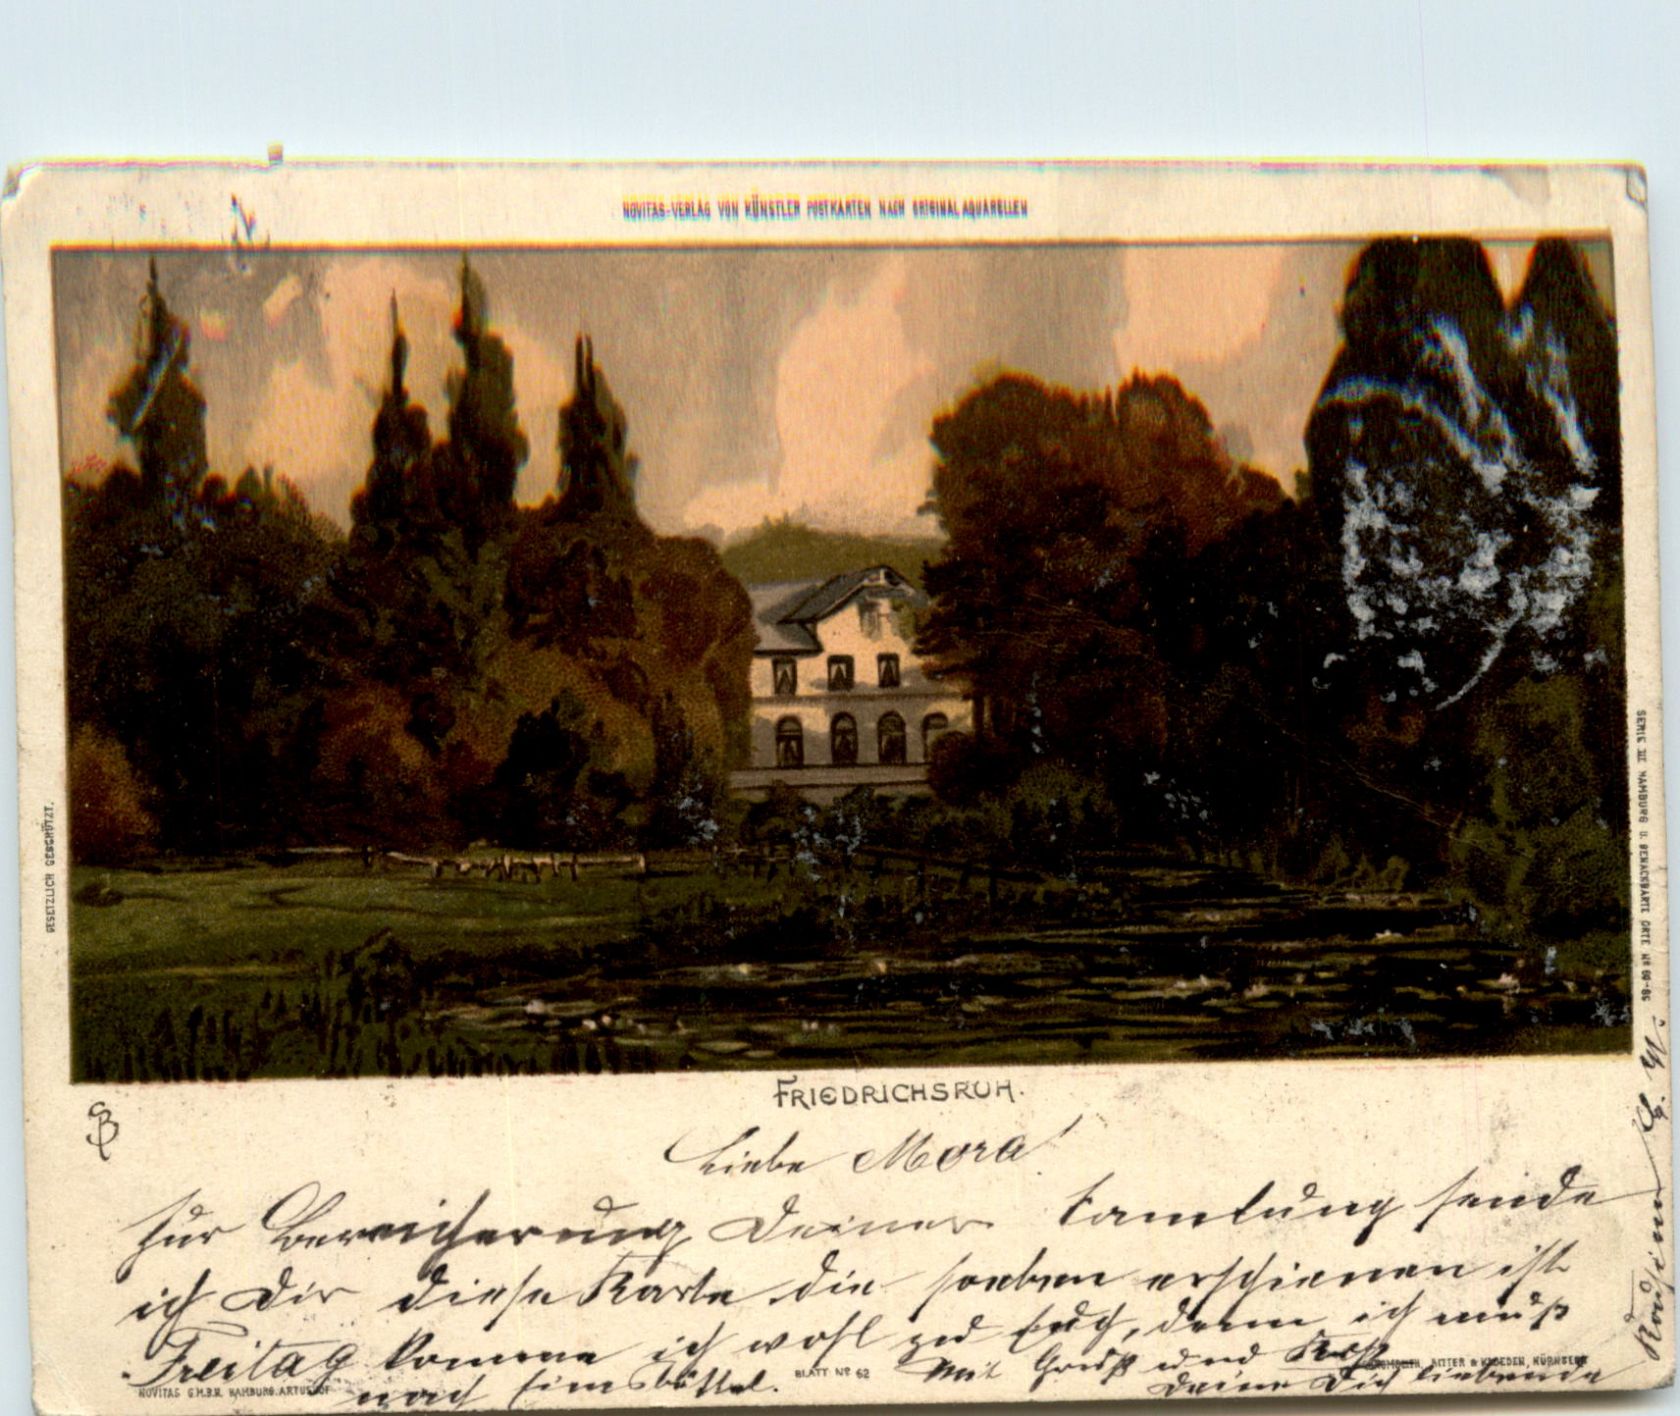 NOVITAS-VERLAG VON KÜNSTLER POSTKARTEN NACH ORIGINAL AQUARELLEN
GESETZLICH GESCHÜTZT.
SERIE III HAMBURG U. BENACHBARTE ORTE Nº 69-98
FRIEDRICHSRUH.
Liebe Mora!
Zur Bereicherung Deiner Samlung sende
ich Dir diese Karte die soeben erschienen ist
Freitag komme ich wohl zu Euch, denn ich muß
nach Eimsbüttel. Mit Gruß und Kuß
Deine Dich liebende
Kousine
NOVITAS G.M.B.H. HAMBURG. ARTUSHOF
BLATT Nº 62
NÜRNBERG